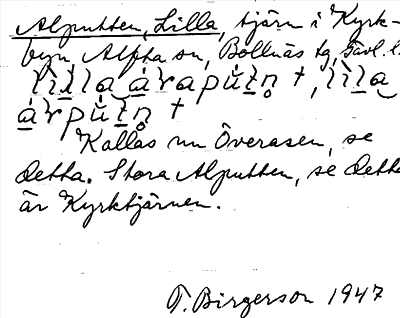 Alputten, Lilla, tjärn i Kyrk-
byn, Alfta sn, Bollnäs tg, Gävl. l.
lìl̀la áṛapùtn̥ †, lìla
áṛpùtn̥ †
Kallas nu Överasen, se
detta. Stora Alputten, se detta
är Kyrktjärnen.
T. Birgerson 1947